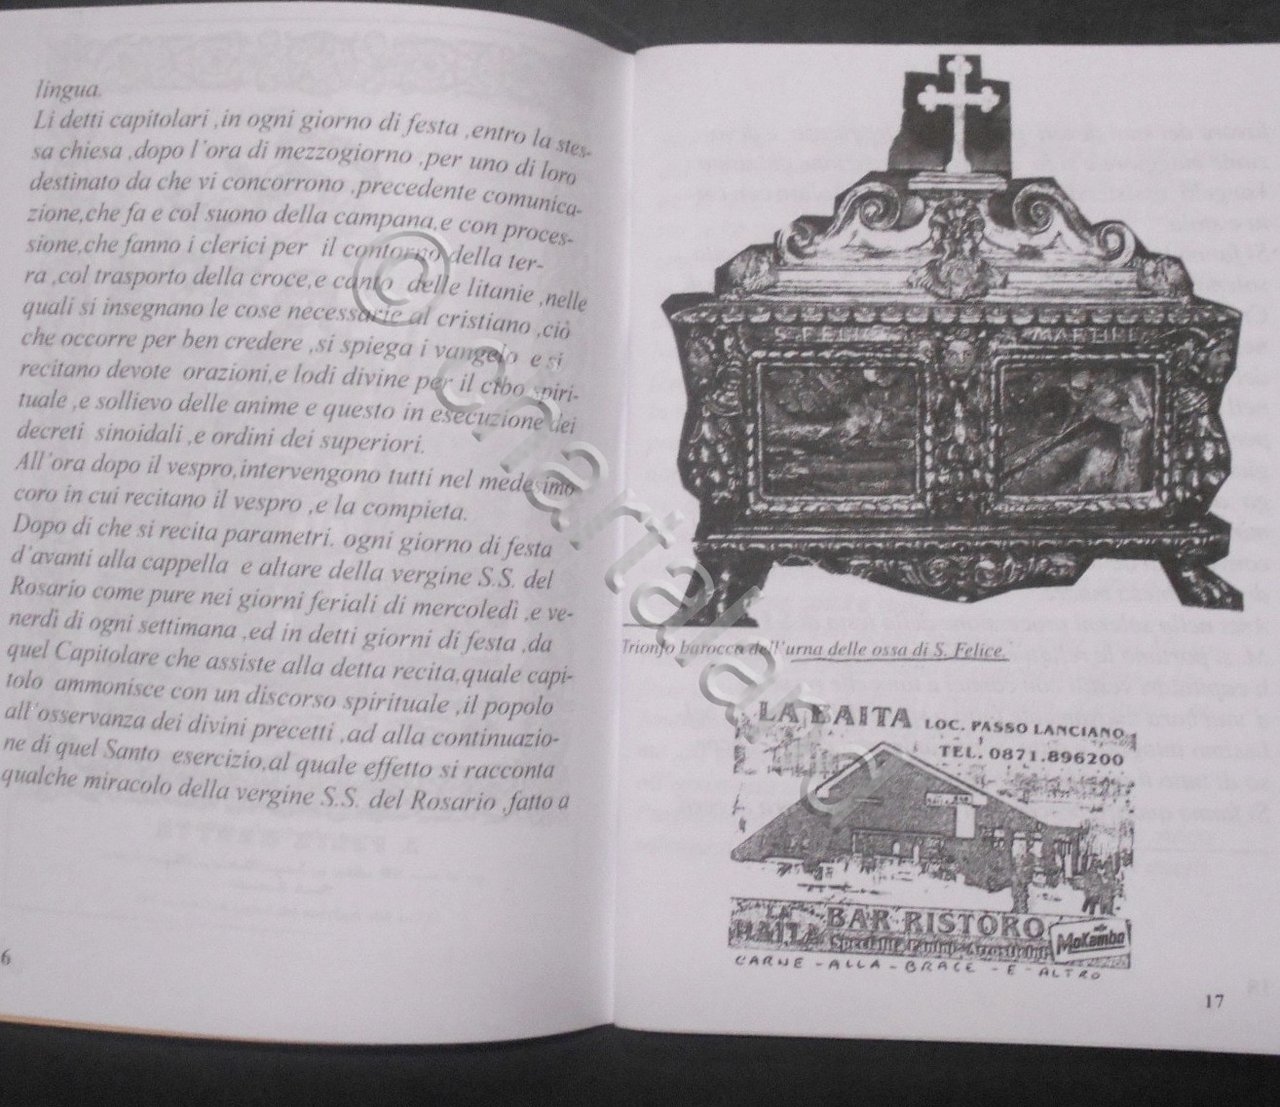 lingua.
Li detti capitolari ,in ogni giorno di festa ,entro la stes-
sa chiesa ,dopo l'ora di mezzogiorno ,per uno di loro
destinato da che vi concorrono ,precedente comunica-
zione,che fa e col suono della campana,e con proces-
sione,che fanno i clerici per il contorno della ter-
ra ,col trasporto della croce,e canto delle litanie ,nelle
quali si insegnano le cose necessarie al cristiano ,ciò
che occorre per ben credere ,si spiega i vangelo e si
recitano devote orazioni,e lodi divine per il cibo spiri-
tuale ,e sollievo delle anime e questo in esecuzione dei
decreti sinoidali ,e ordini dei superiori.
All'ora dopo il vespro,intervengono tutti nel medesimo
coro in cui recitano il vespro ,e la compieta.
Dopo di che si recita parametri. ogni giorno di festa
d'avanti alla cappella e altare della vergine S.S. del
Rosario come pure nei giorni feriali di mercoledì ,e ve-
nerdì di ogni settimana ,ed in detti giorni di festa ,da
quel Capitolare che assiste alla detta recita,quale capi-
tolo ammonisce con un discorso spirituale ,il popolo
all'osservanza dei divini precetti ,ad alla continuazio-
ne di quel Santo esercizio,al quale effetto si racconta
qualche miracolo della vergine S.S. del Rosario ,fatto a
6
Trionfo barocco dell'urna delle ossa di S. Felice.
LA BAITA LOC. PASSO LANCIANO
TEL. 0871.896200
LA BAITA BAR RISTORO
Specialità Panini Arrosticini
MoKambo
CARNE - ALLA - BRACE - E - ALTRO
17
© chartaland